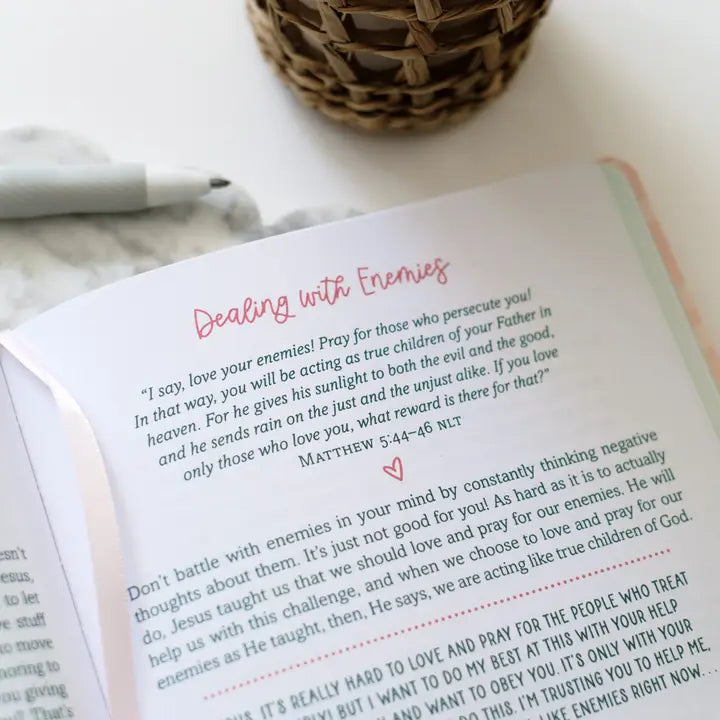 esn't
esus,
to let
e stuff
to move
noring to
you giving
ell! That's
Dealing with Enemies
“I say, love your enemies! Pray for those who persecute you!
In that way, you will be acting as true children of your Father in
heaven. For he gives his sunlight to both the evil and the good,
and he sends rain on the just and the unjust alike. If you love
only those who love you, what reward is there for that?”
Matthew 5:44–46 NLT
Don't battle with enemies in your mind by constantly thinking negative
thoughts about them. It's just not good for you! As hard as it is to actually
do, Jesus taught us that we should love and pray for our enemies. He will
help us with this challenge, and when we choose to love and pray for our
enemies as He taught, then, He says, we are acting like true children of God.
IT'S REALLY HARD TO LOVE AND PRAY FOR THE PEOPLE WHO TREAT
BUT I WANT TO DO MY BEST AT THIS WITH YOUR HELP
AND WANT TO OBEY YOU. IT'S ONLY WITH YOUR
DO THIS. I'M TRUSTING YOU TO HELP ME,
LIKE ENEMIES RIGHT NOW...